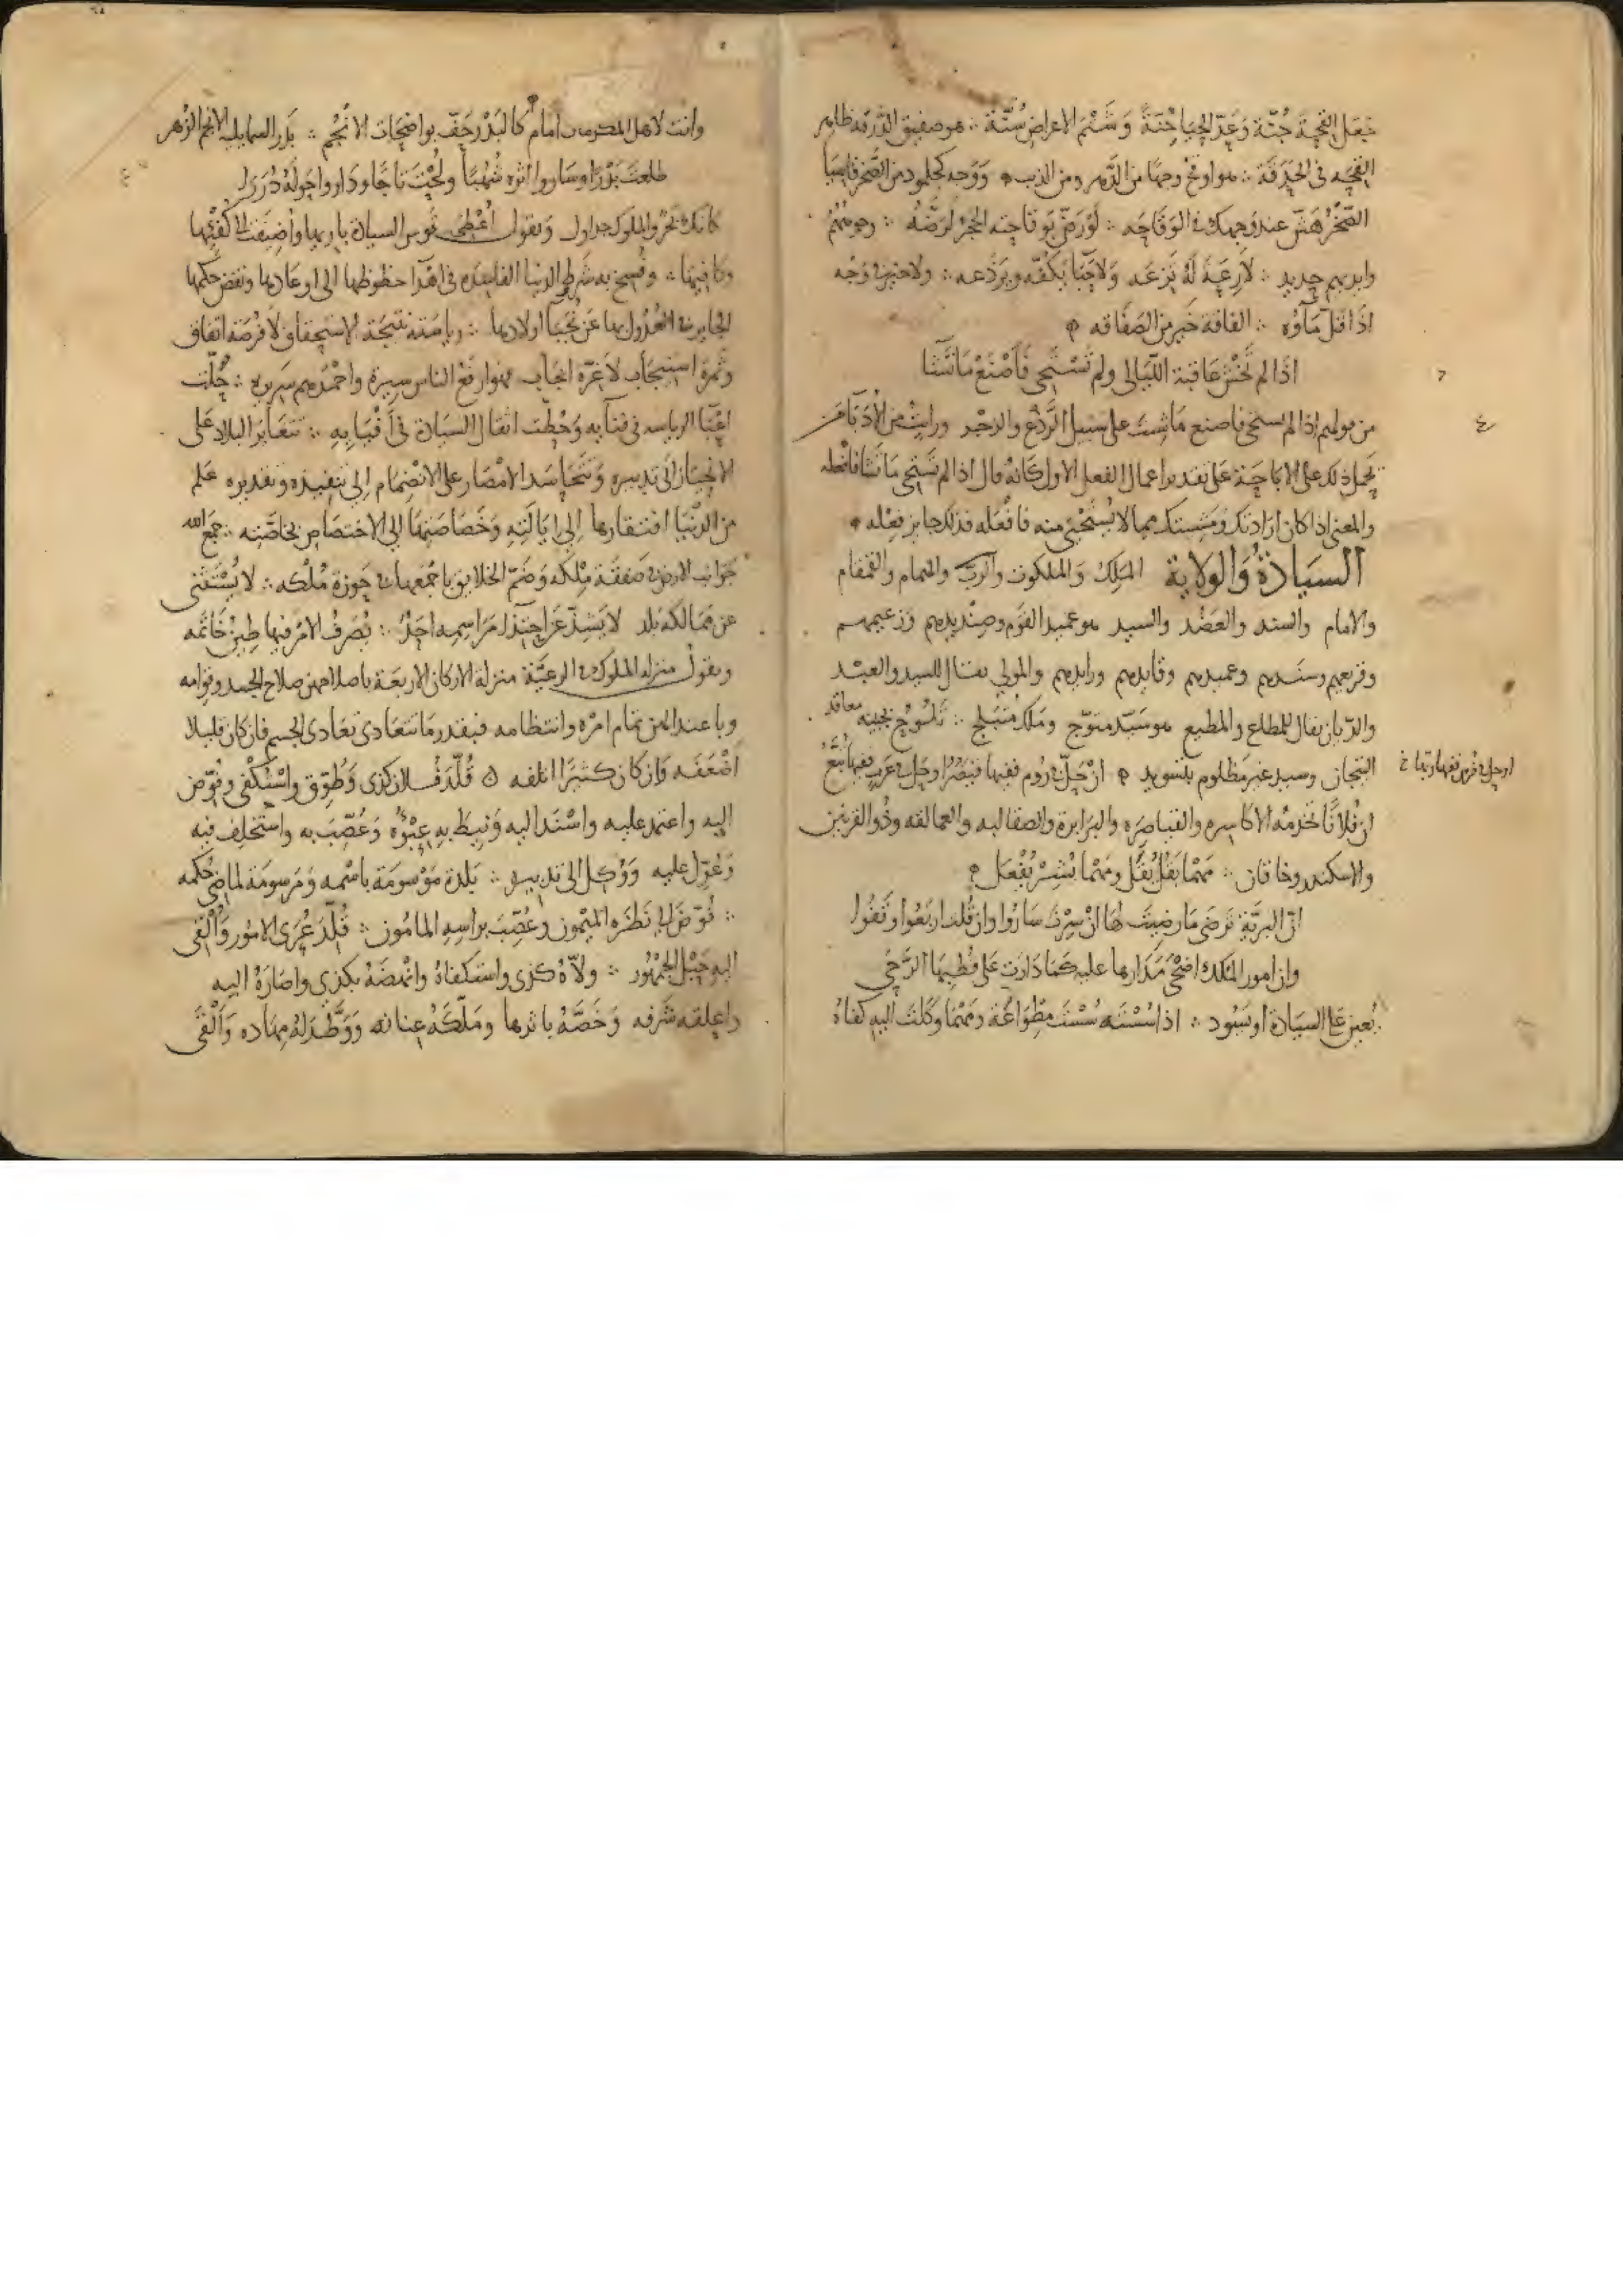 جعل القحة جُنّة وعدّ الحيا جنة وشتم الاعراض سُنّة ∴ هو صفيق الدرقة ظاهر
القحه فى الحدقة ∴ هو اوقح وجها من الدهر ومن الذيب ووجه كجلمود من الصخر
الصّخرُ هَشّ عند وجهك فى الوقاحه ∴ لو رَضّ بوقاحته الحجر لرضّه ∴
حديد ∴ لا رعة له تزعه ولا حيا يكفّه ويردعه ∴ ولا خير فى وجه
اذا قل ماؤه ∴ الفاقة خير من الصفاقه
اذا لم تخش عاقبة الليالى ولم تستحى فاصنع ما تشا
من قولهم اذا لم تستحى فاصنع ما شيت على سبيل الردع والزجر ورايت من الادبا من
يحمل ذلك على الاباحة على تقدير اعمال الفعل الاول كانه قال اذا لم تستحى ما تشا فافعله
والمعنى اذا كان ارادتك ومشيتك مما لا يُستحيى منه فافعله فذلك جايز فعله
السيادة والولاية الملك والملكوت والرب والهمام والقمقام
والامام والسند والعضد والسيد هو عميد القوم وصنديدهم وزعيمهم
وقريعهم وسندهم وعميدهم وقايدهم ورايدهم والمولى يقال للسيد والعبد
والديان يقال للمطاع والمطيع هو سيّد متوّج وملك متبلج ∴ تلوح بجبينه معاقد
التيجان وسيد غير مظلوم بتسويد ان حل فى روم ففيها قيصر او حل فى عرب ففيها تبّع
او حل فى فرس ففيها
ان فلانًا تخدمه الاكاسره والقياصره والبرابرة والصقالبه والعمالقه وذو القرنين
والاسكندر وخاقان ∴ مهما يقل يُقل ومهما يُشر يُفعل
ان البريّة ترضى ما رضيت لها ان سرت ساروا وان قلت اربعوا وقفوا
وان امور الملك اضحى مدارها عليه كما دارت على قطبها الرحى
السيادة او يسود ∴ اذا سُسته سُست مطواعة ومهما وكلت اليه كفاهُ
وانت لاهل المكرمات امام كالبدر حف بواضحات الانجم ∴ بدر السما يليه الانجم الزهر
طلعت بدرًا وساروا اثره شهبًا ولحت تاجًا وداروا حوله دررا
كانك بحر والملوك جداول وتقول اعطى قوس السيادة باريها واضيفت الى كفيها
وكافيها ∴ وفسخ به شرط الدنيا الفاسده فى اهدا حظوظها الى اوغادها ونقض حكمها
الجاير فى العدول بها عن نجبا اولادها ∴ رياسته نتيجة الاستحقاق لا فرصة اتفاق
وثمرة استيجاب لا غرّة ايجاب فهو ارفع الناس سيرة واحمدهم سريره ∴ حُلّت
اعبا الرياسه فى فنايه وحُطّت اثقال السيادة فى افيايه ∴ تتغاير البلاد على
الانحياز الى تدبيره وتتحاسد الامصار على الانضمام الى تنفيذه وتقديره علم
من الدنيا افتقارها الى ايالته وخصاصتها الى الاختصاص بخاصّته ∴ جمع الله
جوانب الارض صفقة ملكه وضم الخلايق باجمعها فى حوزة مُلكه ∴ لا يُستثنى
عن ممالكه بلد لا يشذ عن احتذا مراسمه احد ∴ يُصرف الامر فيها طين خاتمه
وتقول منزلة الملوك من الرعيّة منزلة الاركان الاربعة باصلاحهن صلاح الجسد وقوامه
وباعتدالهن تمام امره وانتظامه فبقدر ما تتعادى تعادى الجسم فان كان قليلا
اضعفه وان كان كثيرًا اتلفه قُلّد فُلان كذى وطُوّق واستُكفى وفُوّض
اليه واعتمد عليه واسند اليه ونيط به عبؤه وعُصّب به واستخلف فيه
وعُوّل عليه ووُكل الى تدبيره ∴ بلدة موسومة باسمه ومرسومة لماضى حُكمه
∴ فُوّض الى نظره الميمون وعُصّب براسه المامون ∴ قُلّد عُرى الامور والقى
اليه حبل الجمهور ∴ ولّاه كذى واستكفاه وانهضه بكذى واصاره اليه
واعلقه شرفه وخصّه باثرها وملّكه عنانه ووطّد له مهاده والقى